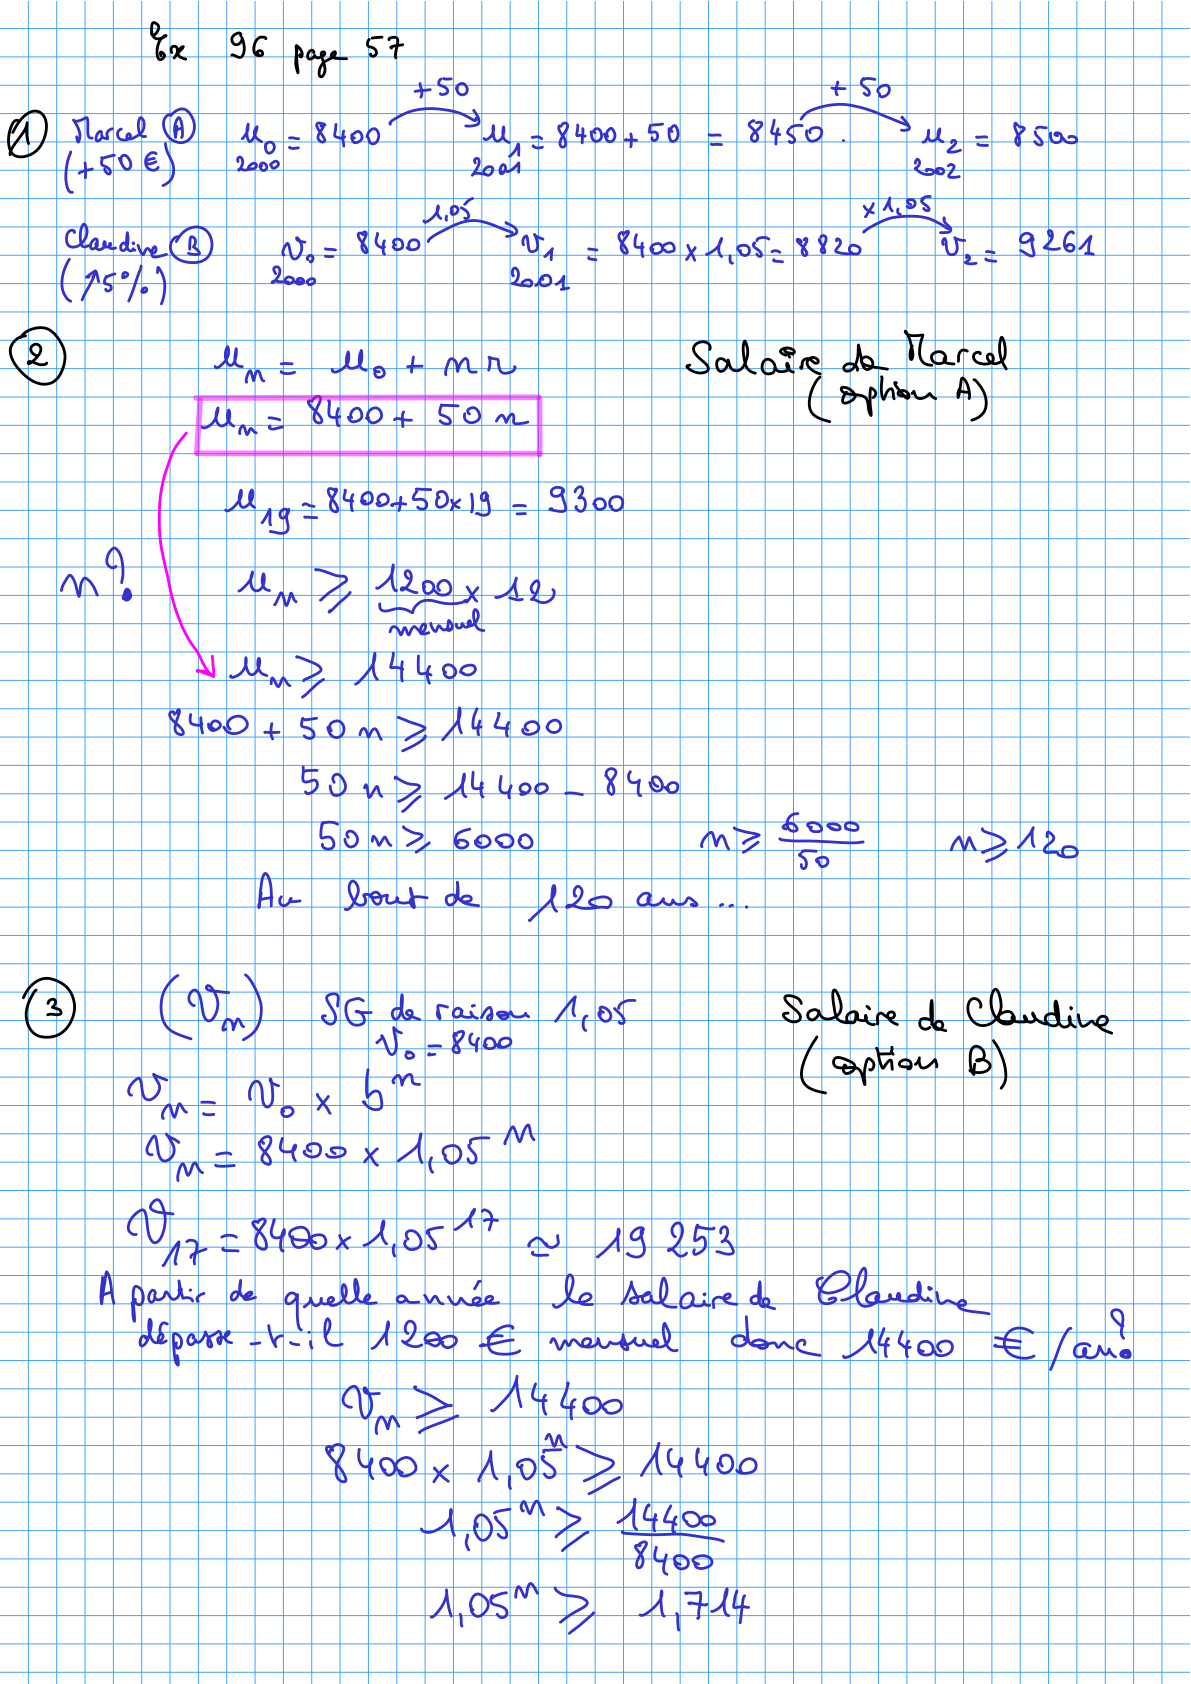 Ex 96 page 57
+50 + 50
1 Marcel A u0 = 8400 u1 = 8400 + 50 = 8450. u2 = 8500
(+50 €) 2000 2001 2002
1,05 × 1,05
Claudine B v0 = 8400 v1 = 8400 × 1,05 = 8820 v2 = 9261
(↗5%) 2000 2001
2 un = u0 + n r Salaire de Marcel
(option A)
un = 8400 + 50 n
u19 = 8400 + 50 × 19 = 9300
n? un ⩾ 1200 × 12
mensuel
un ⩾ 14400
8400 + 50 n ⩾ 14400
50 n ⩾ 14400 - 8400
50 n ⩾ 6000 n ⩾ 6000/50 n ⩾ 120
Au bout de 120 ans ...
3 (vn) SG de raison 1,05 Salaire de Claudine
v0 = 8400 (option B)
vn = v0 × b^n
vn = 8400 × 1,05^n
v17 = 8400 × 1,05^17 ≃ 19 253
A partir de quelle année le salaire de Claudine
dépasse-t-il 1200 € mensuel donc 14400 € /an?
vn ⩾ 14400
8400 × 1,05^n ⩾ 14400
1,05^n ⩾ 14400/8400
1,05^n ⩾ 1,714